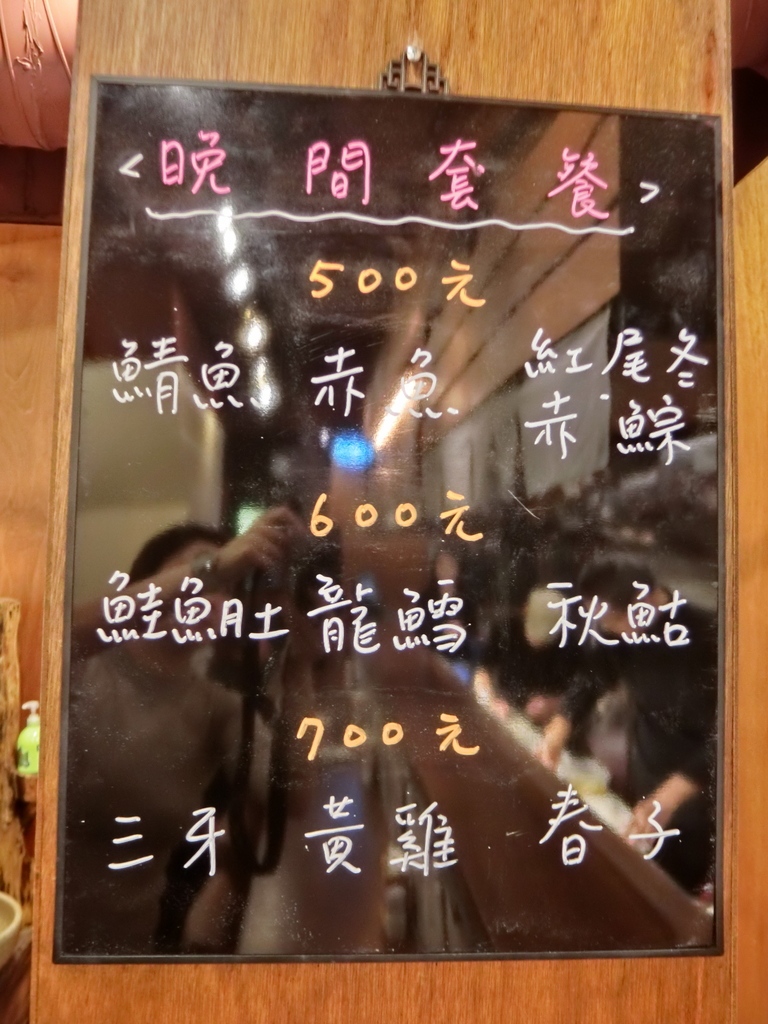 <晚間套餐>
500元
鯖魚 赤魚 紅尾冬
赤鯮
600元
鮭魚肚 龍鱈 秋鮕
700元
三牙 黃雞 春子